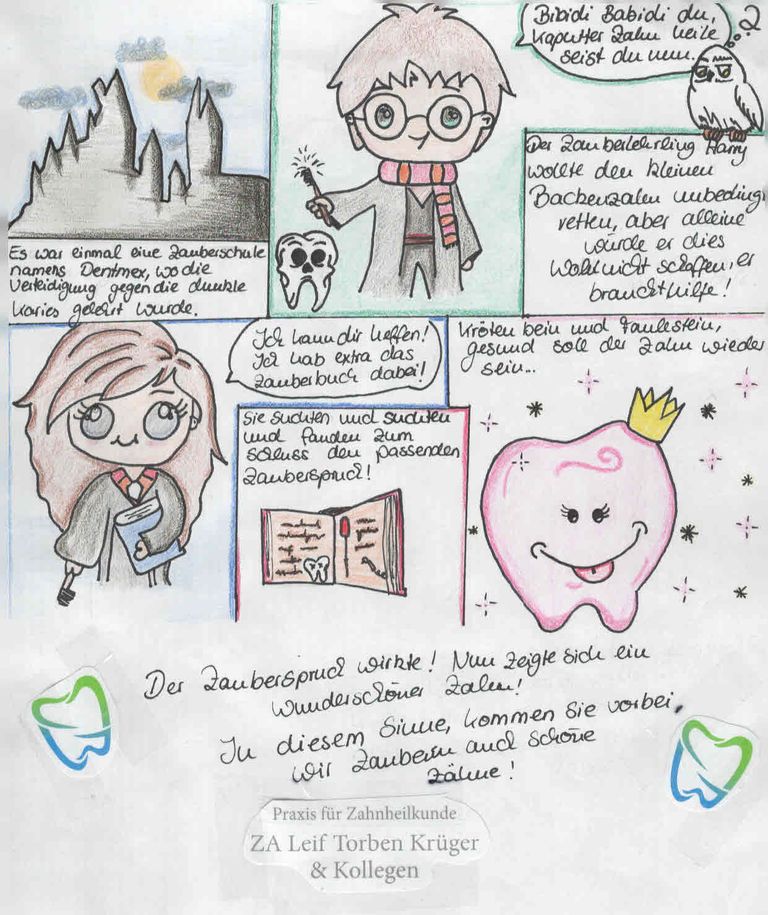 Es war einmal eine Zauberschule
namens Dentmex, wo die
Verteidigung gegen die dunkle
Karies gelehrt wurde.
Bibidi Babidi du,
kaputter Zahn heile
seist du nun.
?
Der Zauberlehrling Harry
wollte den kleinen
Backenzahn unbedingt
retten, aber alleine
würde er dies
wohl nicht schaffen, er
braucht hilfe!
Ich kann dir helfen!
Ich hab extra das
Zauberbuch dabei!
Sie suchten und suchten
und fanden zum
schluss den passenden
Zauberspruch!
Krötenbein und Faulestein,
gesund soll der Zahn wieder
sein...
Der Zauberspruch wirkte! Nun zeigte sich ein
wunderschöner Zahn!
In diesem Sinne, kommen Sie vorbei,
wir Zaubern auch schöne
Zähne!
Praxis für Zahnheilkunde
ZA Leif Torben Krüger
& Kollegen